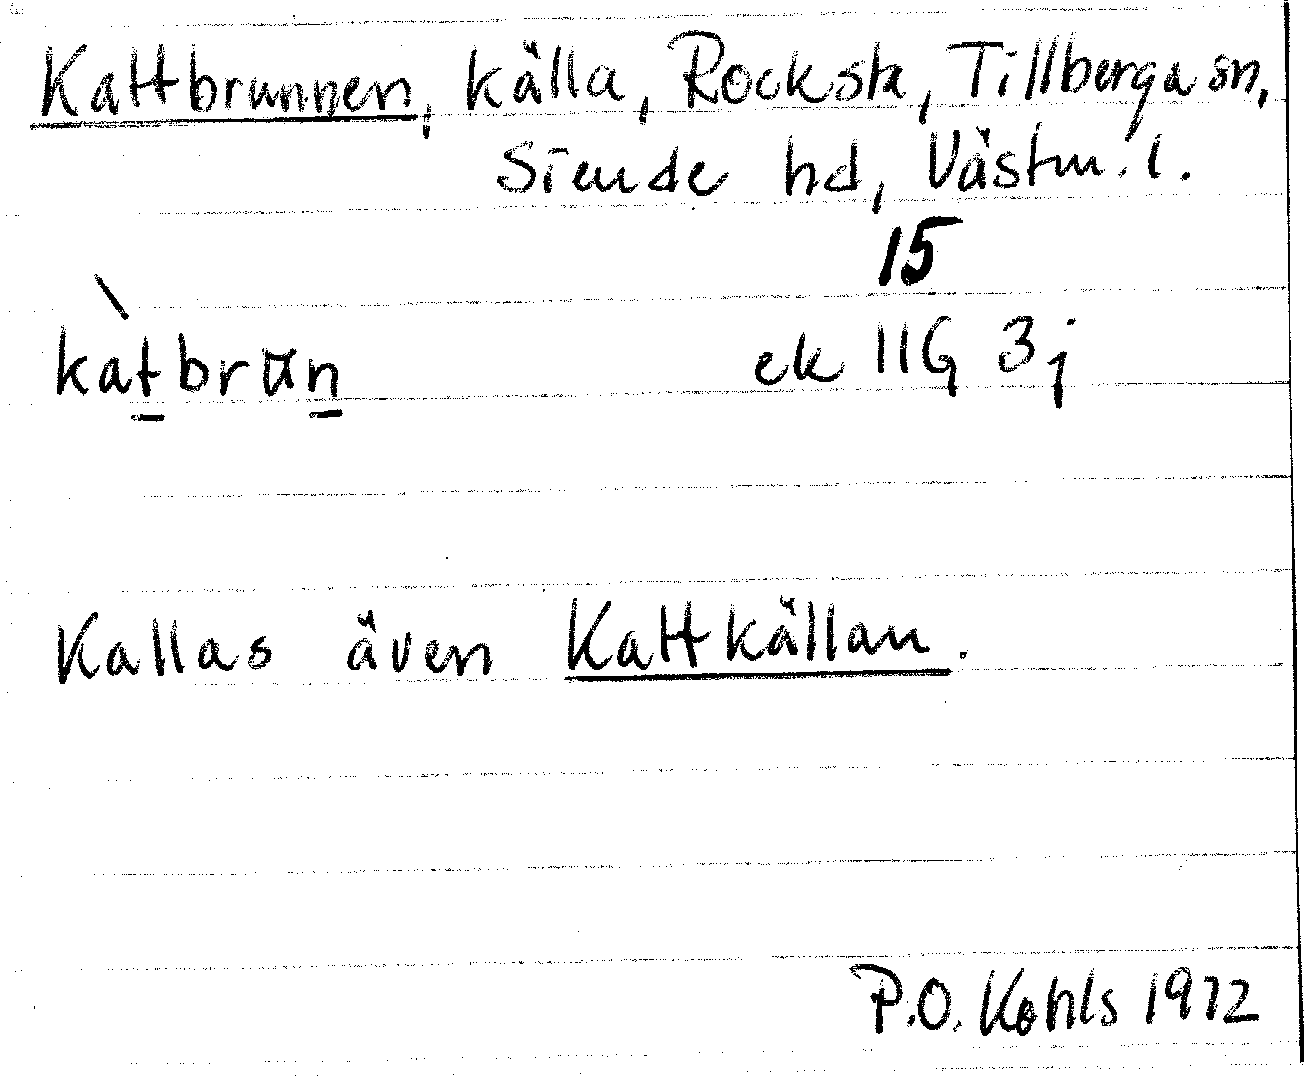 Kattbrunnen, källa, Rocksta, Tillberga sn,
Siende hd, Västm. l.
15
kàt̲brun̲
ek 11G 3j
Kallas även Kattkällan.
P.O. Kohls 1972